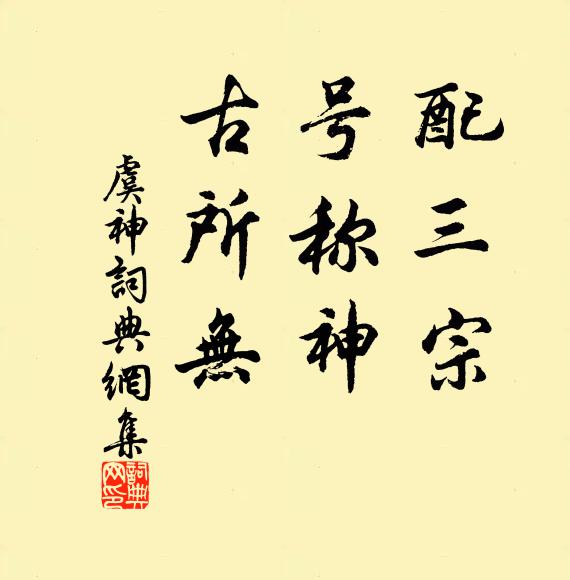 配三宗
号称神
古所無
虞神詞典網集
詞典网印